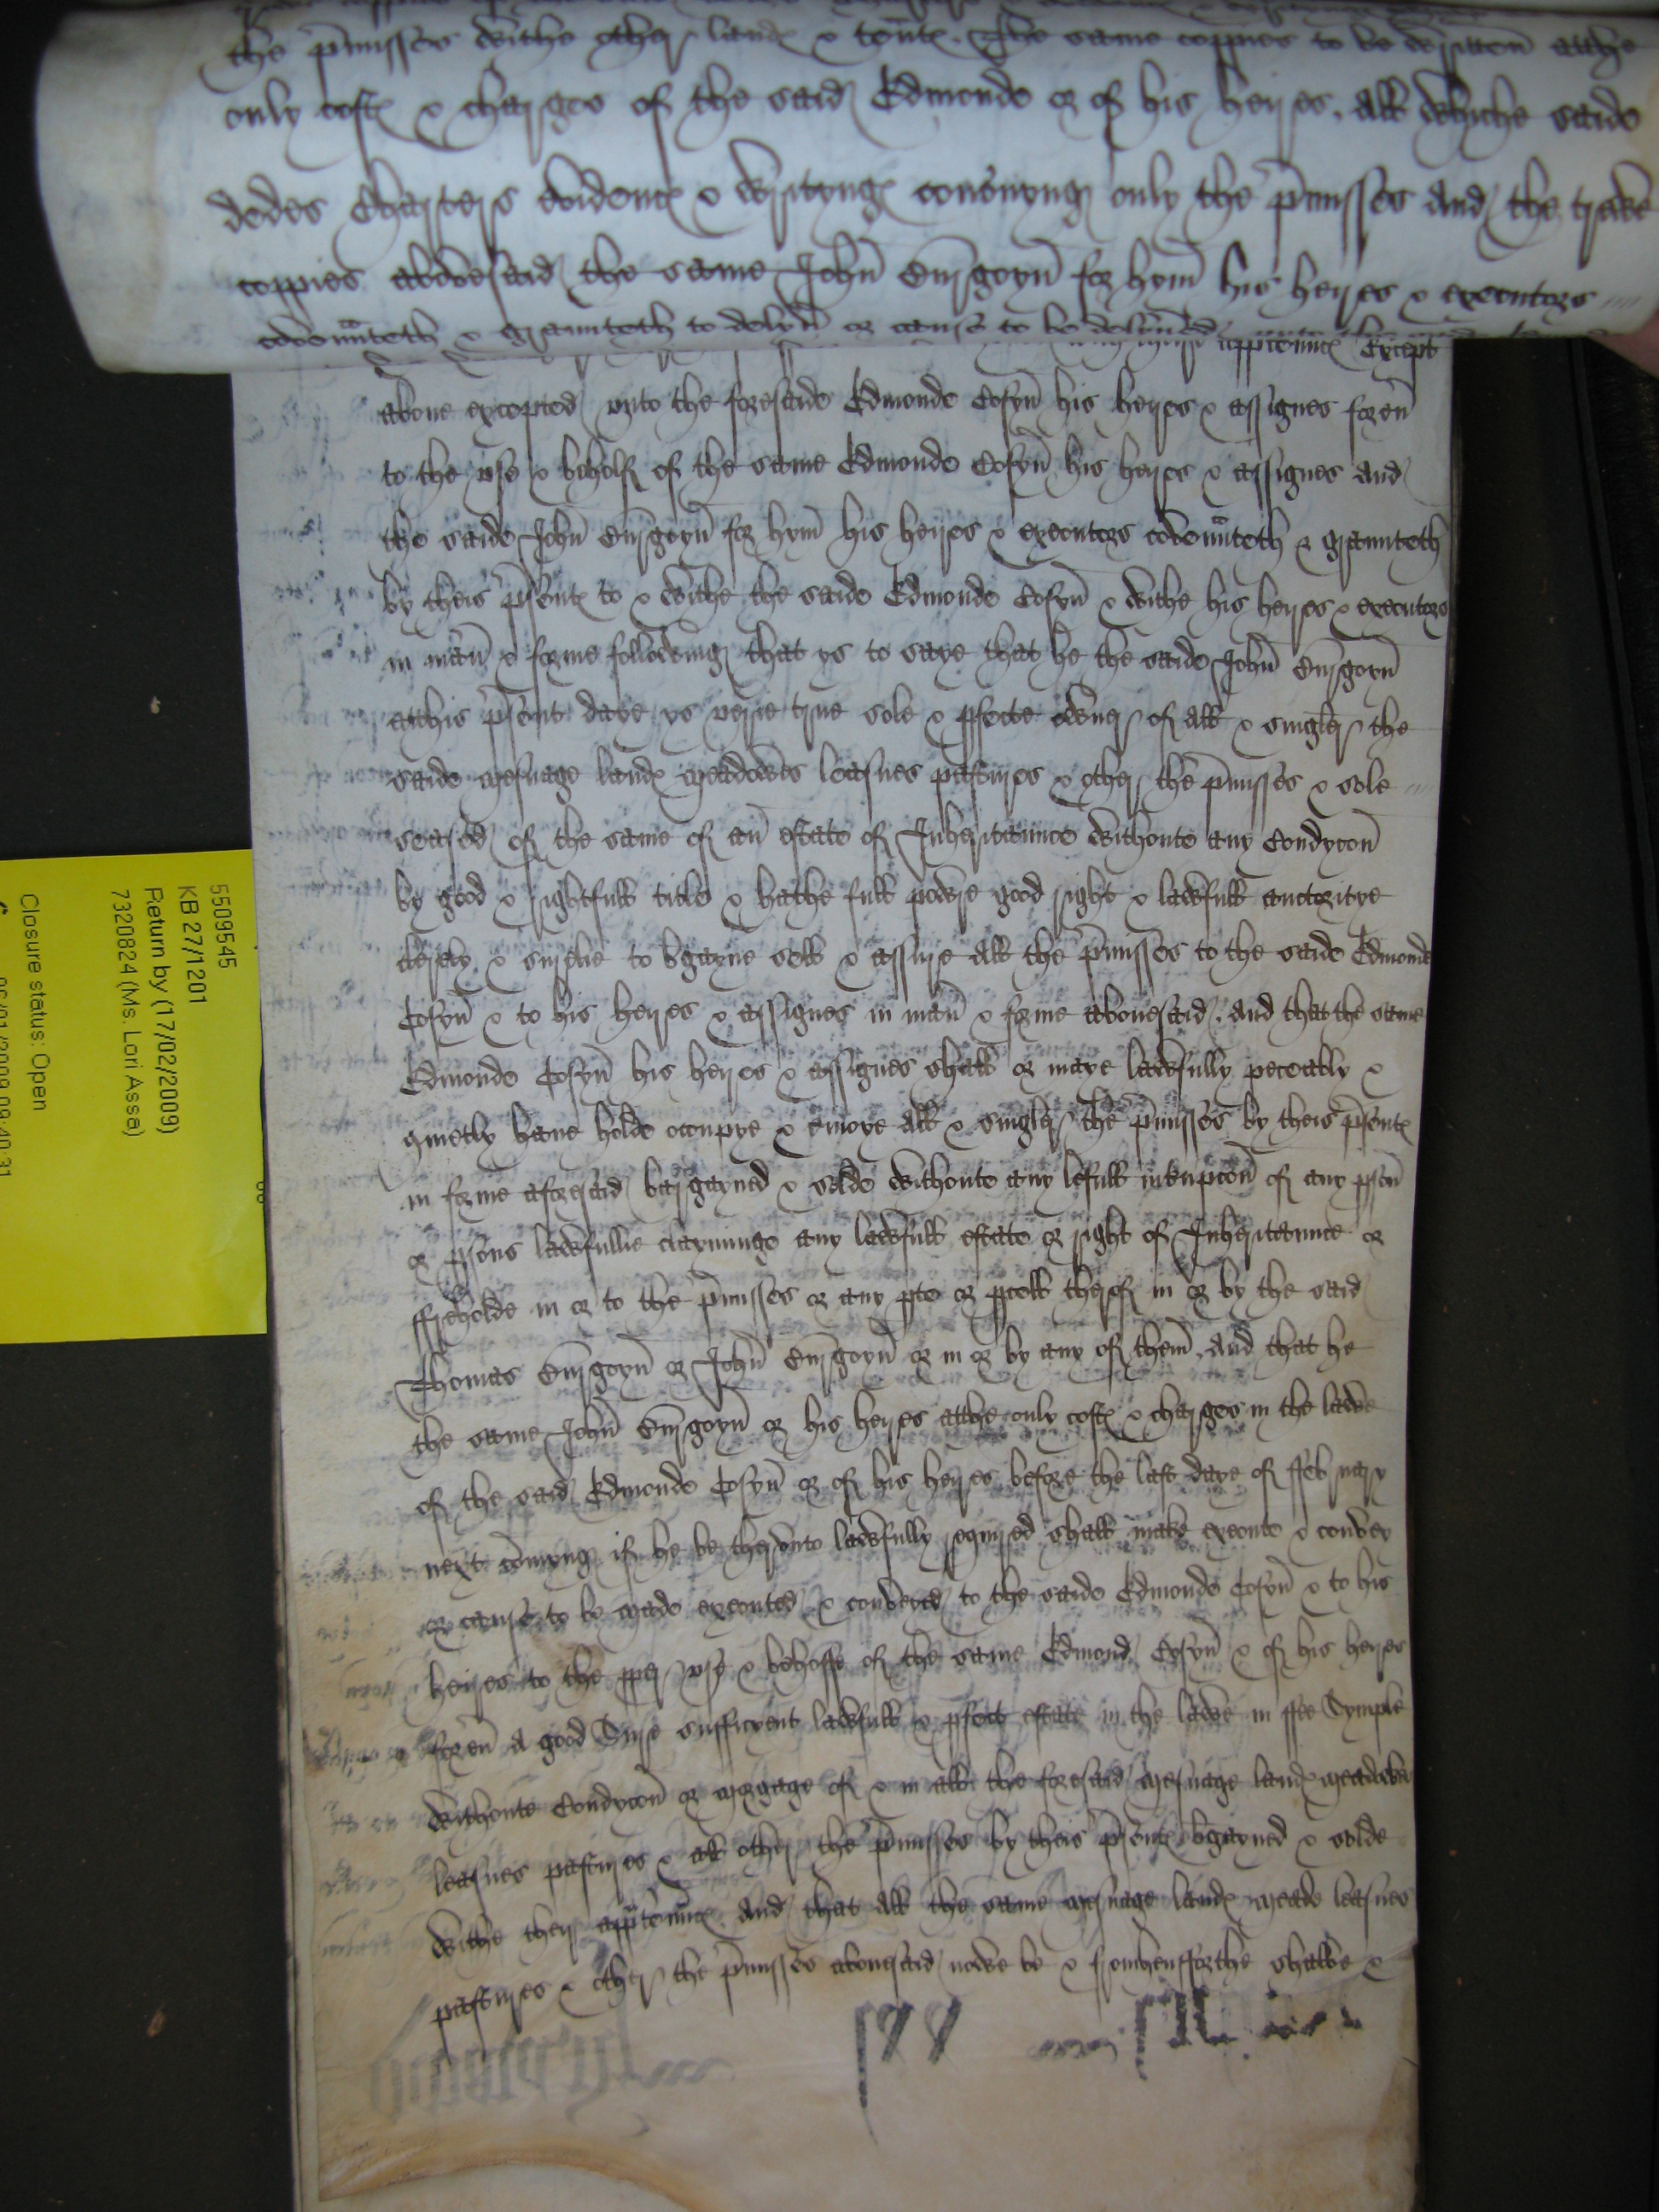 the p'misses withe other landℓ & tentℓ. The same coppies to be written atthe
only costℓ & charges of the said Edmonde or of his heires. All whiche saide
dedes Charters evidencℓ & writyngℓ concernyng only the p'misses And the trewe
coppies abovesaid the same John Burgoyn for hym his heires & executors
covenᵃnteth & graunteth to delyv' or cause to be delyv'ed
apptenncℓ Except
above excepted unto the foresaide Edmonde Cosyn his heires & assignes forev'
to the use & beholf of the same Edmonde Cosyn his heires & assignes And
the saide John Burgoyn for hym his heires & executors covenᵃnteth & graunteth
by theis p'sentℓ to & withe the saide Edmonde Cosyn & withe his heires & executors
in man' & forme followeing that ys to saye that he the saide John Burgoyn
atthis p'sent daye ys verie true sole & pfecte owner of all & singler the
saide mesuage landℓ meadowes leasues pastures & other the p'misses & sole
seased of the same of an estate of Inheritaunce withoute any Condycon
by good & rightfull title & hathe full power good right & lawfull auctoritye
clerely & surelie to bgayne sell & assure all the p'misses to the saide Edmonde
Cosyn & to his heires & assignes in man' & forme abovesaid. And that the same
Edmonde Cosyn his heires & assignes shall or maye lawfully peceably &
quietly have holde occupye & enioye all & singler the p'misses by theis p'sentℓ
in forme aforesaid bargayned & solde withoute any lefull int'rupcon of any pson
or psons lawfullie clayminge any lawfull estate or right of Inheritaunce or
ffreholde in or to the p'misses or any pte or pcell therof in or by the said
Thomas Burgoyn or John Burgoyn or in or by any of them. And that he
the same John Burgoyn or his heires atthe only costℓ & charges in the lawe
of the said Edmonde Cosyn or of his heires before the last daye of ffebruary
next comyng if he be therunto lawfully required shall make execute & convey
or cause to be made executed & conveyed to the saide Edmonde Cosyn & to his
heires to the pper use & behoffe of the same Edmond Cosyn & of his heires
forev' A good Sure sufficyent lawfull & pfect estate in the lawe in ffee Symple
withoute Condycon or morgage of & in all the foresaid mesuage landℓ meadowes
leasues pastures & all other the p'misses by theis p'sentℓ bgayned & solde
withe their apptenncℓ. And that all the same mesuage landℓ meade leasues
pastures & other the p'misses abovesaid nowe be & fromhensforthe shalbe &
5509545
KB 27/1201
Return by (17/02/2009)
7320824 (Ms. Lori Asse)
Closure status: Open